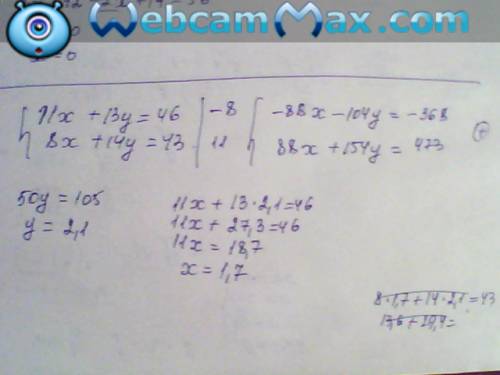 WebcamMax.com
x=0
11x + 13y = 46 | -8 -88x - 104y = -368
8x + 14y = 43 | 11 88x + 154y = 473
50y = 105
y = 2,1
11x + 13·2,1 = 46
11x + 27,3 = 46
11x = 18,7
x = 1,7
8·1,7 + 14·2,1 = 43
13,6 + 29,4 =